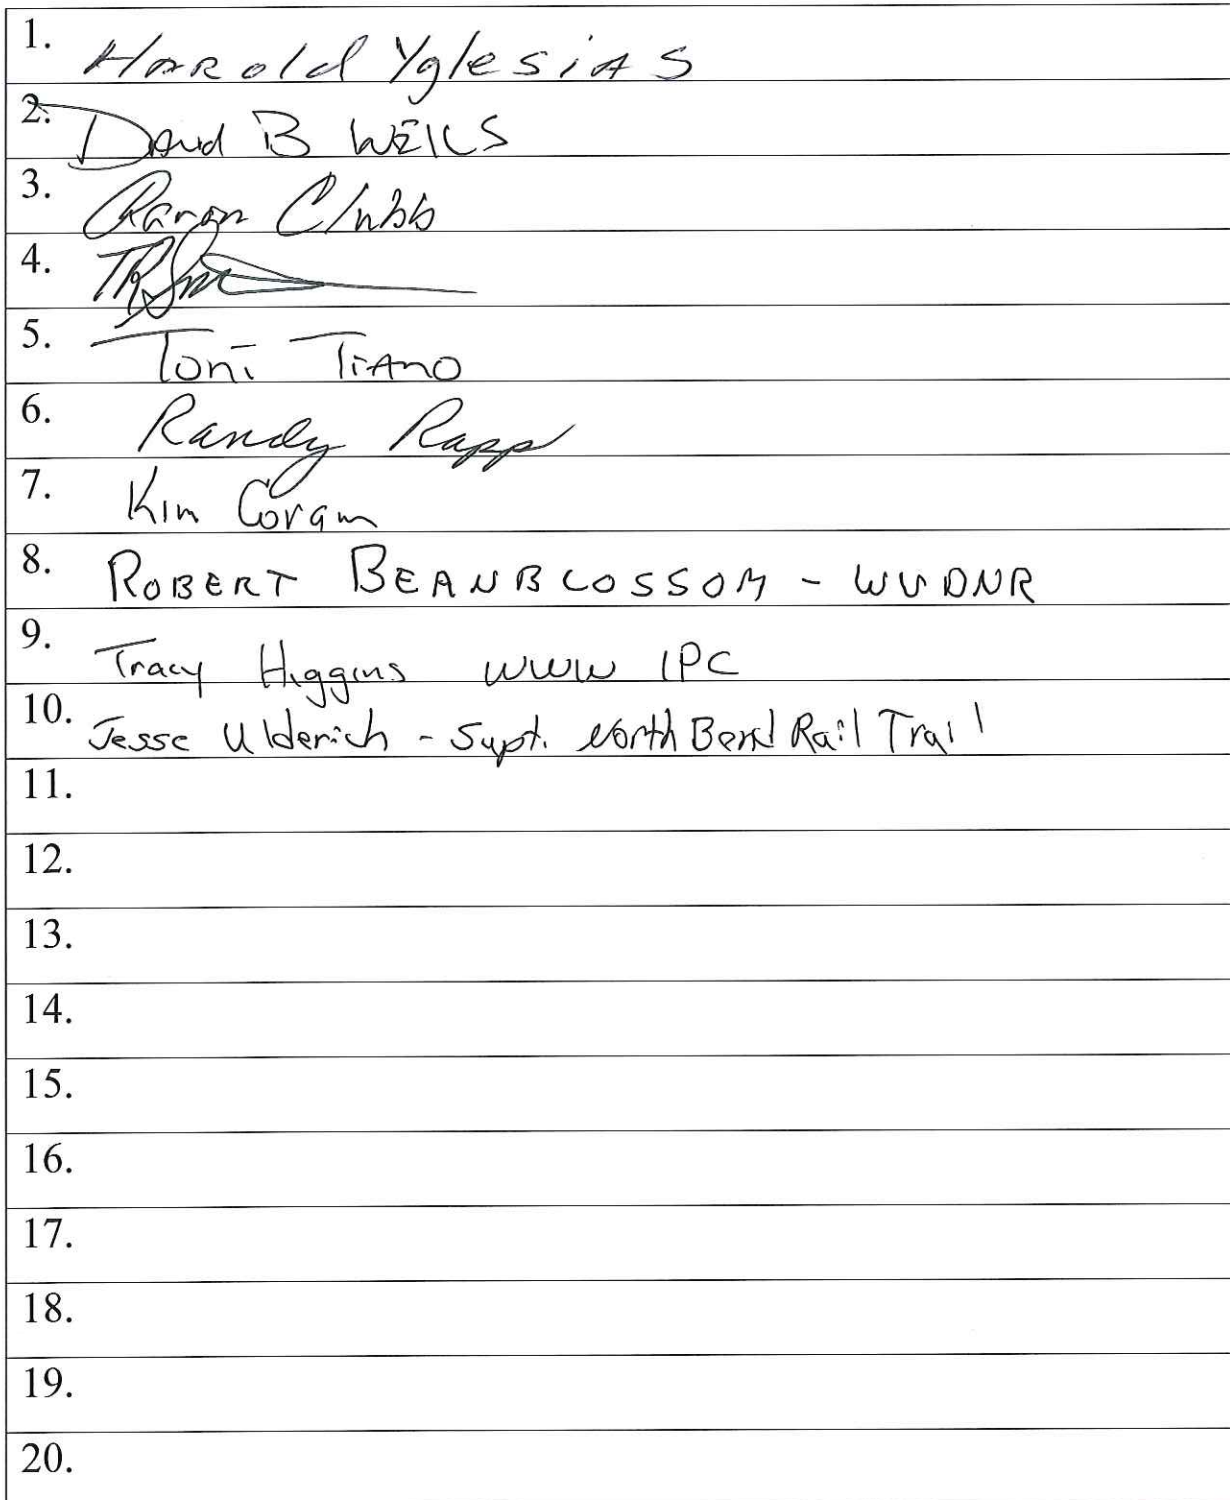 1. Harold Yglesias
2. David B WEllS
3. Aaron Clubb
4.
5. Toni Tiano
6. Randy Rapp
7. Kim Coram
8. ROBERT BEANBLOSSOM - WVDNR
9. Tracy Higgins WWW IPC
10. Jesse Ulderich - Supt. North Bend Rail Trail
11.
12.
13.
14.
15.
16.
17.
18.
19.
20.